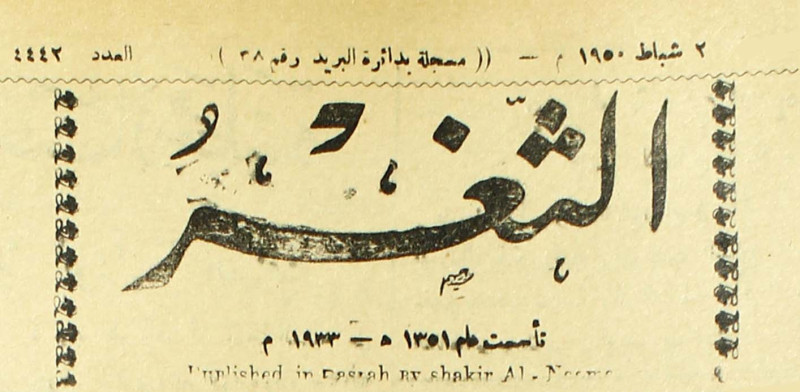 ٢ شباط ١٩٥٠ م — (( مسجلة بدائرة البريد رقم ٣٨ ) العدد ٤٤٤٢
الثَّغْرُ
تأسست عام ١٣٥١ ه — ١٩٣٣ م
in Basrah By shakir Al-